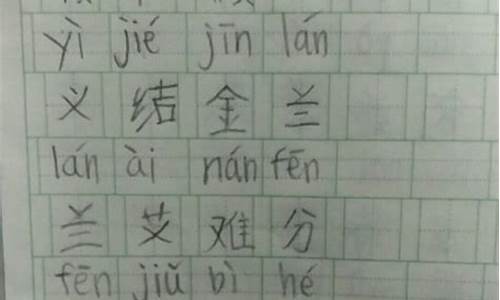 yì jié jīn lán
义结金兰
lán ài nán fēn
兰艾难分
fēn jiǔ bì hé